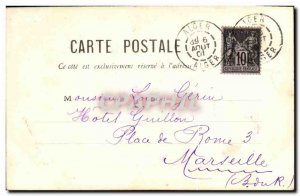 ALGER
6
AOUT
01
ALGER
10
CARTE POSTALE
Ce côté est exclusivement réservé à l'adresse
Monsieur Léon Gérin
Hotel Guillon
Place de Rome 3
Marseille
(B.du.R.)